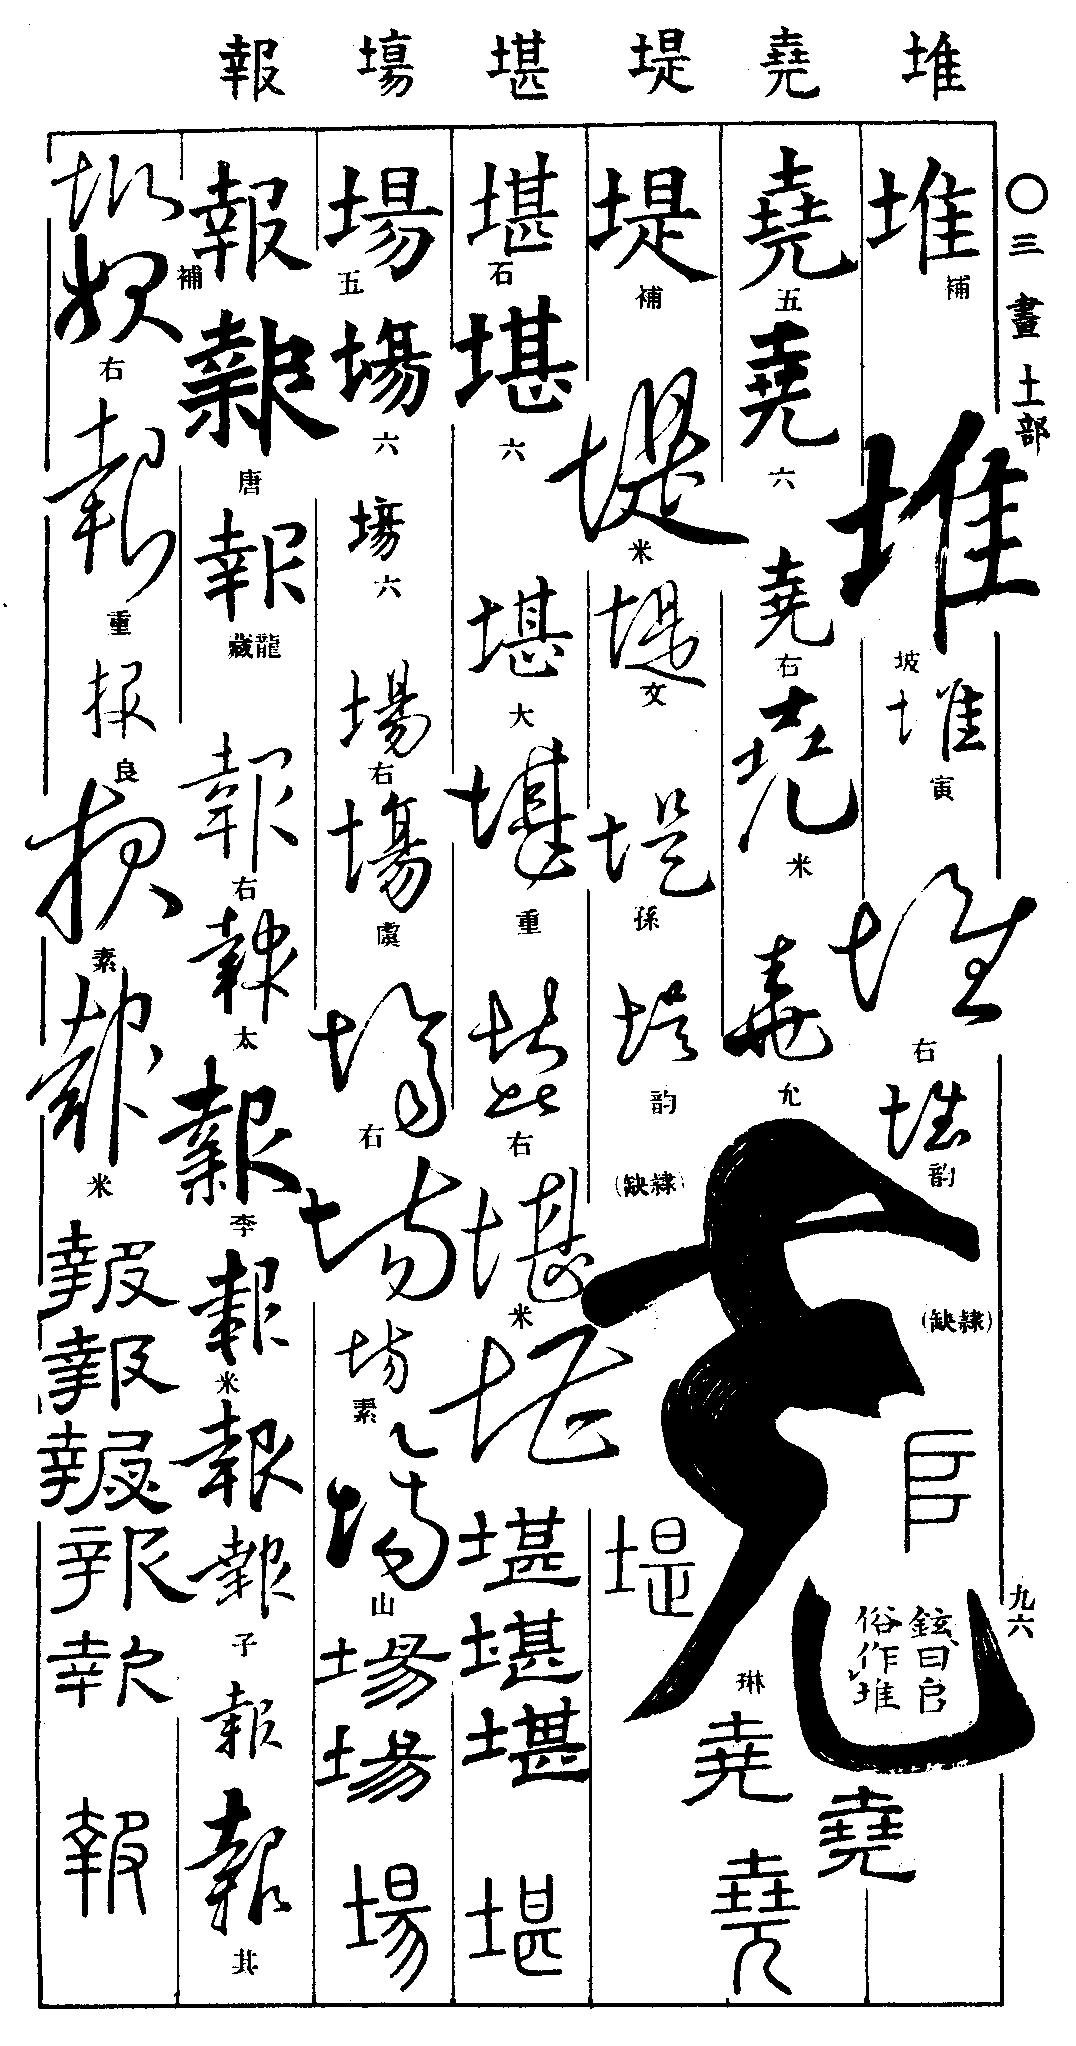 堆 堯 堤 堪 塲 報
〇三畫 土部
九六
堆 補 堆 坡 堆 寅 堆 右 堆 韵 (隸缺) 𠂤
鉉曰𠂤
俗作堆
堯 五 堯 六 堯 右 堯 米 堯 允 堯 琳 堯 堯 堯
堤 補 堤 米 堤 文 堤 孫 堤 韵 (隸缺) 堤
堪 石 堪 六 堪 大 堪 重 堪 右 堪 米 堪 堪 堪 堪 堪
場 五 場 六 場 六 場 右 場 虞 場 右 場 場 素 場 山 場 場 場
報 補 報 唐 報 龍藏 報 右 報 太 報 李 報 米 報 報 子 報 報 其
報 報 右 報 重 報 良 報 素 報 米 報 報 報 報 報 報